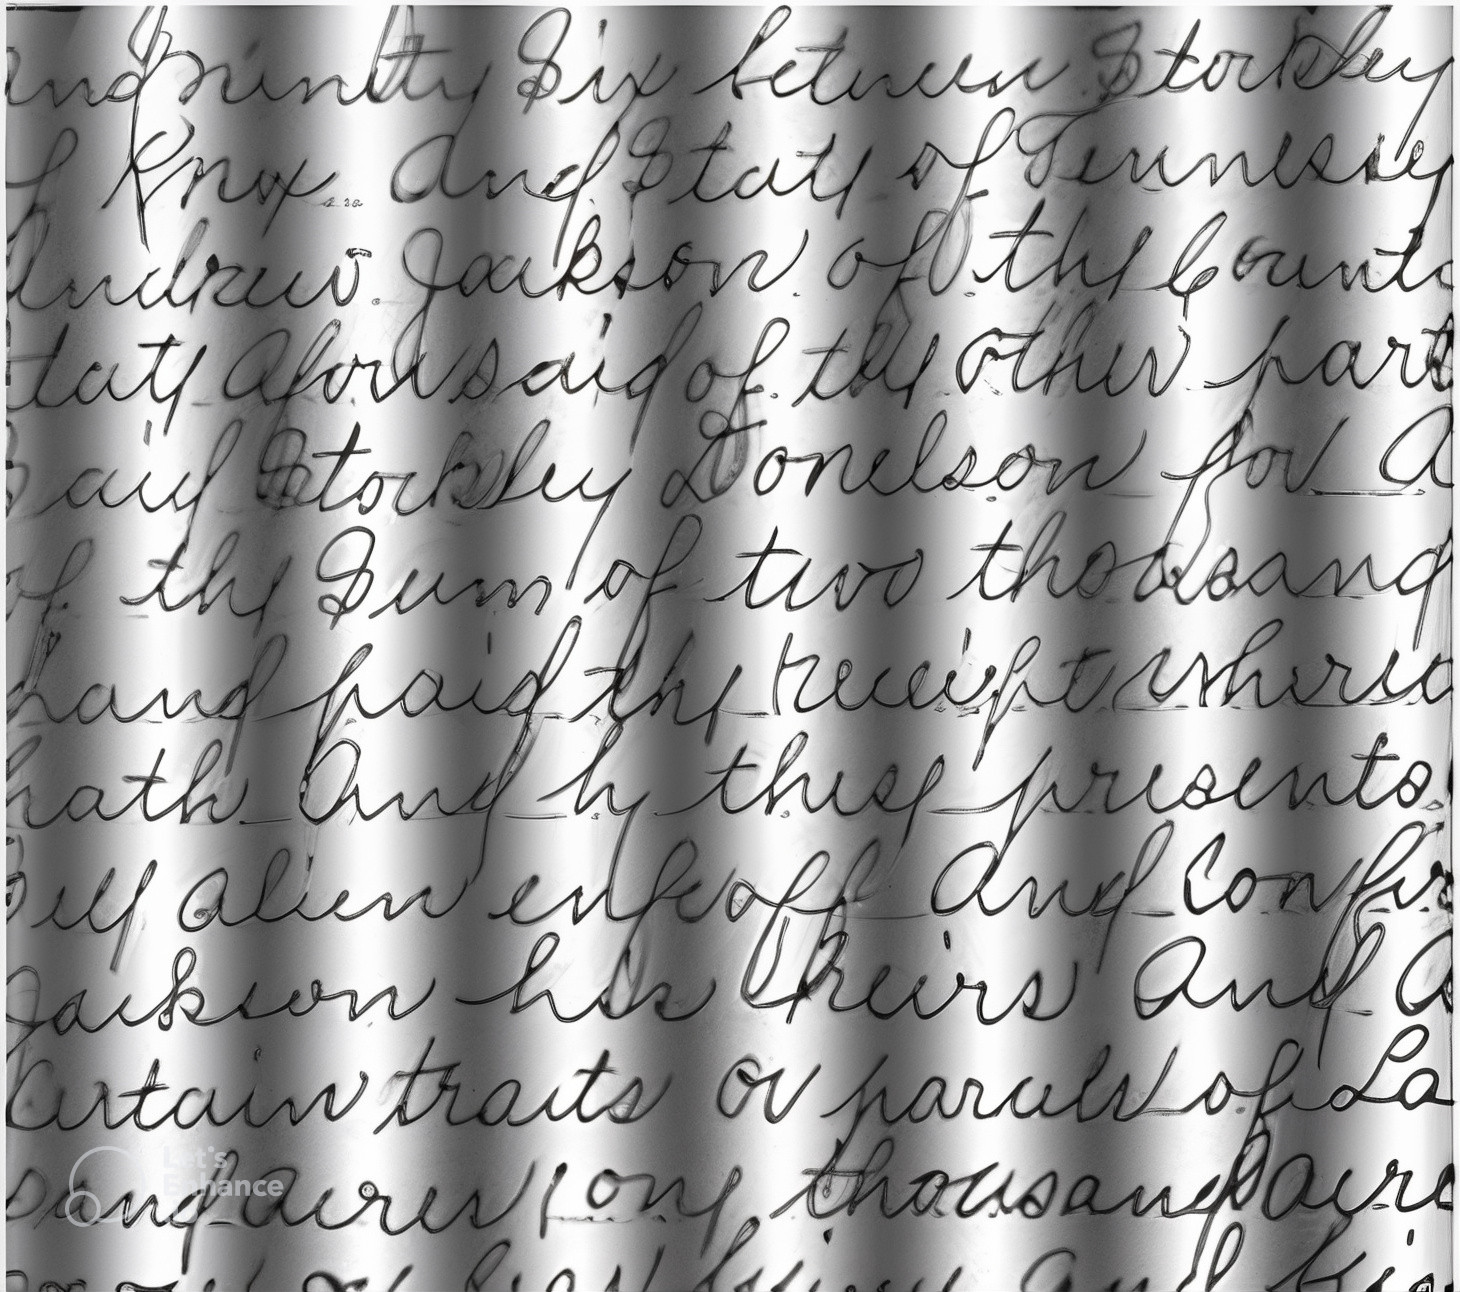 and Ninety Six between Stockley
of Knox And State of Tennessee
Andrew Jackson of the Count
State Aforesaid of the other part
Said Stockley Donelson for A
of the Sum of two thousand
hand paid the receipt where
hath And by these presents
Sell alien enfeoff And Confir
Jackson his heirs And A
Certain tracts or parcels of La
sand acres one thousand acre
Let's
Enhance